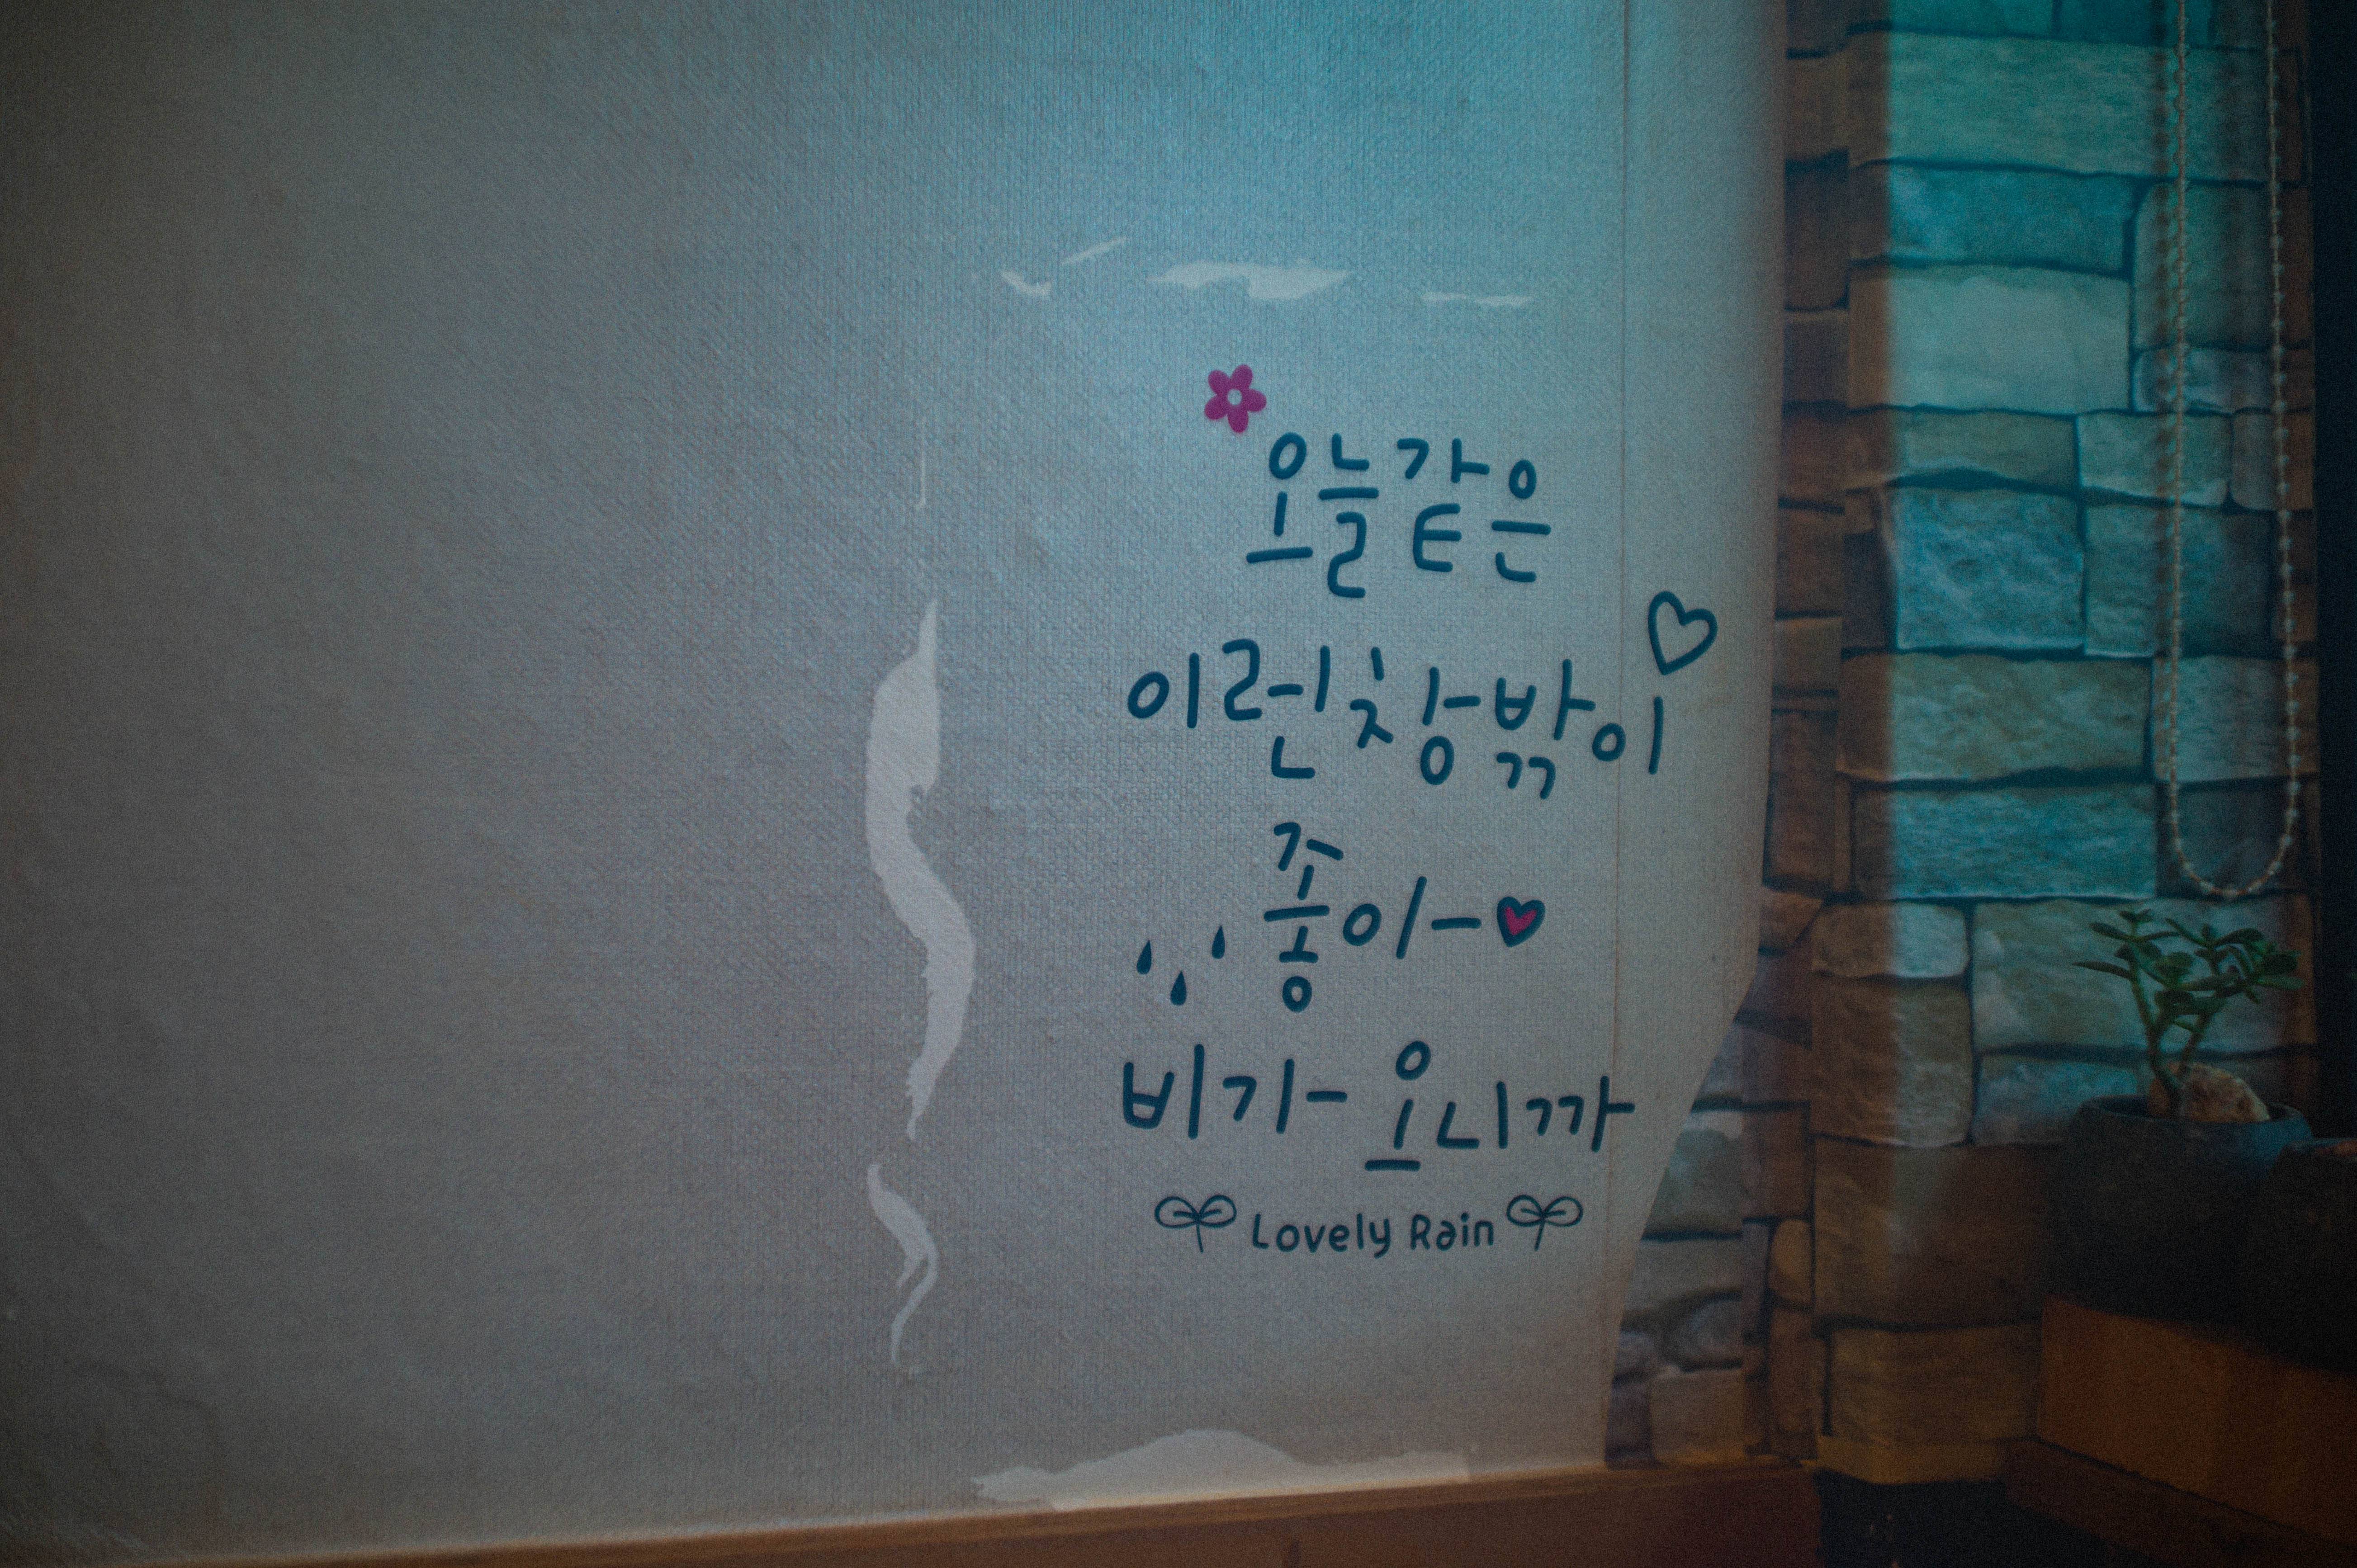 오늘같은
이런창밖이
좋이-
비가-오니까
Lovely Rain